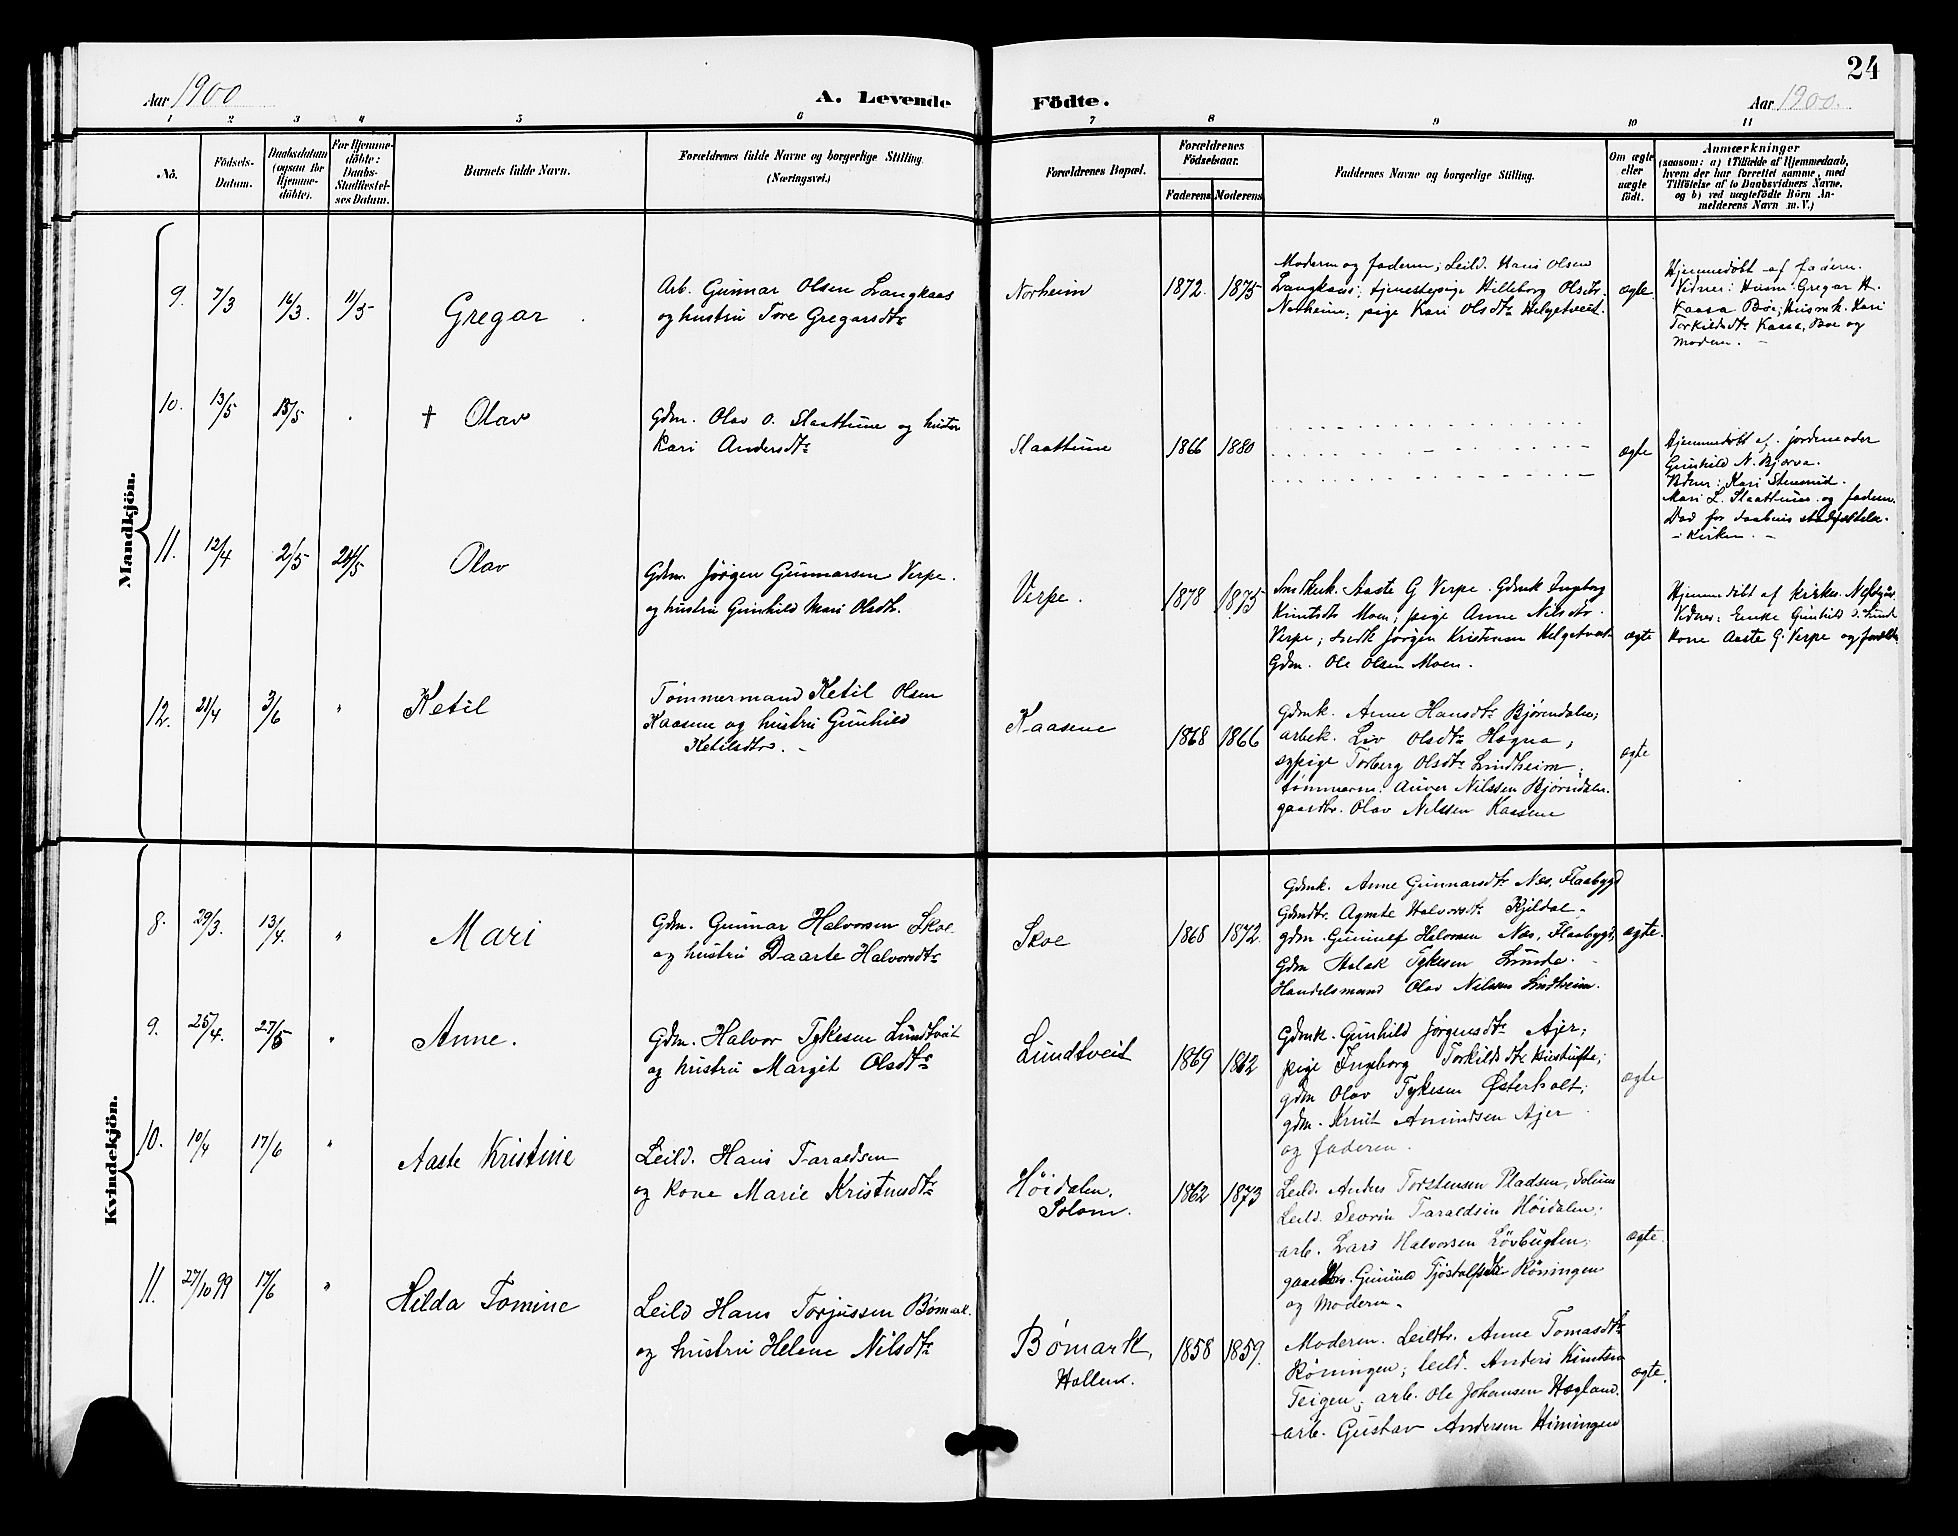 24
Aar 1900
A. Levende Födte.
Aar 1900.
1 2 3 4 5 6 7 8 9 10 11
No.
Födsels-
Datum.
Daabsdatum
(ogsaa for
Hjemme-
döbte).
For Hjemme-
döbte:
Daabs-
Stadfæstel-
ses Datum.
Barnets fulde Navn.
Forældrenes fulde Navne og borgerlige Stilling.
(Næringsvei.)
Forældrenes Bopæl.
Forældrenes
Födselsaar.
Faderens Moderens
Faddernes Navne og borgerlige Stilling.
Om ægte
eller
uægte
födt.
Anmærkninger
(saasom: a) i Tilfælde af Hjemmedaab,
hvem der har forrettet samme, med
Tilföielse af to Daabsvidners Navne,
og b) ved uægtefödte Börn An-
melderens Navn m. V.)
Mandkjön.
9. 7/3 16/3. 11/5 Gregar
Arb. Gunnar Olsen Langkaas
og hustru Tore Gregarsdtr
Norheim 1872. 1875
Moderen og faderen; Leild. Hans Olsen
Langkaas; tjenestepige Hilleborg Olsdtr.
Norheim; pige Kari Olsdtr Helgetveit.
ægte.
Hjemmedøbt af faderen.
Vidner: Gregar H.
Kaasa Bøe; Kari
Torkildsdtr Kaasa, Bøe og
Moderen. -
10. 13/5 13/5 . † Olav
Gdm. Olav O. Slaattune og hustru
Kari Andersdtr
Slaattune 1866 1880
ægte
Hjemmedøbt af jordemoder
Gunhild N. Bjorva.
Vidner: Kari
Mari L. Slaattune og faderen.
Død før daabens stadfæstelse
i kirken. -
11. 12/4 2/5 24/5 Olav
Gdm. Jørgen Gunnarsen Verpe.
og hustru Gunhild Mari Olsdtr.
Verpe. 1878 1875
Aaste G Verpe. Gdmk Ingborg
Knutsdtr Moen; pige Anne Nilsdtr.
Verpe; Jørgen Kristensen Helgetveit
Gdm. Ole Olsen Moen.
ægte
Hjemmedøbt af kirkes.
Vidner: Enke Gunhild
kone Aaste G. Verpe og
12. 21/4 3/6 " Ketil
Tømmermand Ketil Olsen
Kaasene og hustru Gunhild
Ketilsdtr. -
Kaasene 1868 1866
Gdmk. Anne Hansdtr Bjørndalen;
arbek. Liv Olsdtr Hogna;
sypige Torberg Olsdtr Lindheim;
tømmerm. Nilssen Bjørndalen.
gaardbr. Olav Nilssen Kaasene
ægte
Kvindekjön.
8. 29/3. 13/4. " Mari
Gdm. Gunnar Halvorsen Skoe
og hustru Daarte Halvorsdtr
Skoe 1868 1872
Gdmk. Anne Gunnarsdtr Næs, Flaabygd
Gdmdtr. Agnete Halvorsdtr Kjildal -
gdm. Gunnulf Halvorsen Næs, Flaabygd,
Gdm Aslak Tykesen Lunde. -
Handelsmand Olav Nilssen Lindheim.
ægte.
9. 25/4. 27/5 " Anne.
Gdm. Halvor Tykesen Lundtveit
og hustru Margit Olsdtr
Lundtveit 1869 1862
Gdmk. Gunhild Jørgensdtr Ajer;
pige Ingeborg Torkildsdtr
gdm Olav Tykesen Østerholt;
gdm. Knut Amundsen Ajer
og faderen.
ægte
10. 10/4 17/6 " Aaste Kristine
Leild. Hans Taraldsen
og kone Marie Kristensdtr
Höidalen,
Solom. 1862 1873
Leild. Anders Torstensen Pladsen, Solum
Leild. Severin Taraldsen Höidalen;
arb. Lars Halvorsen Lövbugten;
Gunild Tjöstolfsdtr Röningen
og Moderen.
ægte.
11. 27/10 99 17/6 " Hilda Tomine
Leild Hans Torjussen Bømark.
og hustru Helene Nilsdtr
Bømark,
Hollen. 1858 1859.
Moderen. Leildtr. Anne Tomasdtr
Røningen; leild. Anders Knutsen
Teigen; arb. Ole Johansen Hægland.
arb. Gustav Andersen Himingen
ægte.